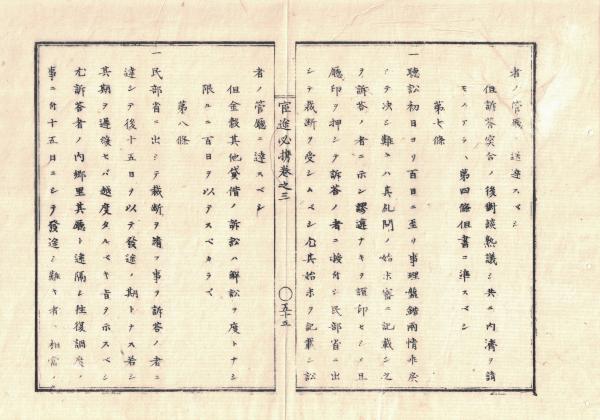 者ノ管廳ヘ送達スベシ
但訴答突合ノ後對談熟議シ共ニ内濟ヲ請
モノアラハ第四條但書ニ準スベシ
第七條
一聽訟初日ヨリ百日ニ至リ事理盤錯兩情乖戾
シテ決シ難キハ真糺問ノ始末審ニ記載シ之
ヲ訴答ノ者ニ示シ謬違ナキヲ證印セシメ且
廳印ヲ押シテ訴答ノ者ニ授付シ民部省ニ出
シテ裁斷ヲ受シムベシ尤其始末ヲ記載シ訟
官途必携卷之三
五十五
者ノ管廳ニ達スベシ
但金穀其他貸借ノ訴訟ハ解訟ヲ度トナシ
限ルニ百日ヲ以テスベカラズ
第八條
一民部省ニ出シテ裁斷ヲ請フ事ヲ訴答ノ者ニ
達シテ後十五日ヲ以テ發途ノ期トナス若シ
其期ヲ遷延セバ越度タルベキ旨ヲ示スベシ
尤訴答者ノ内鄉里其廳ト遠隔シ往復調度ノ
事ニ付十五日ニシテ發途シ難キ者ハ相當ノ